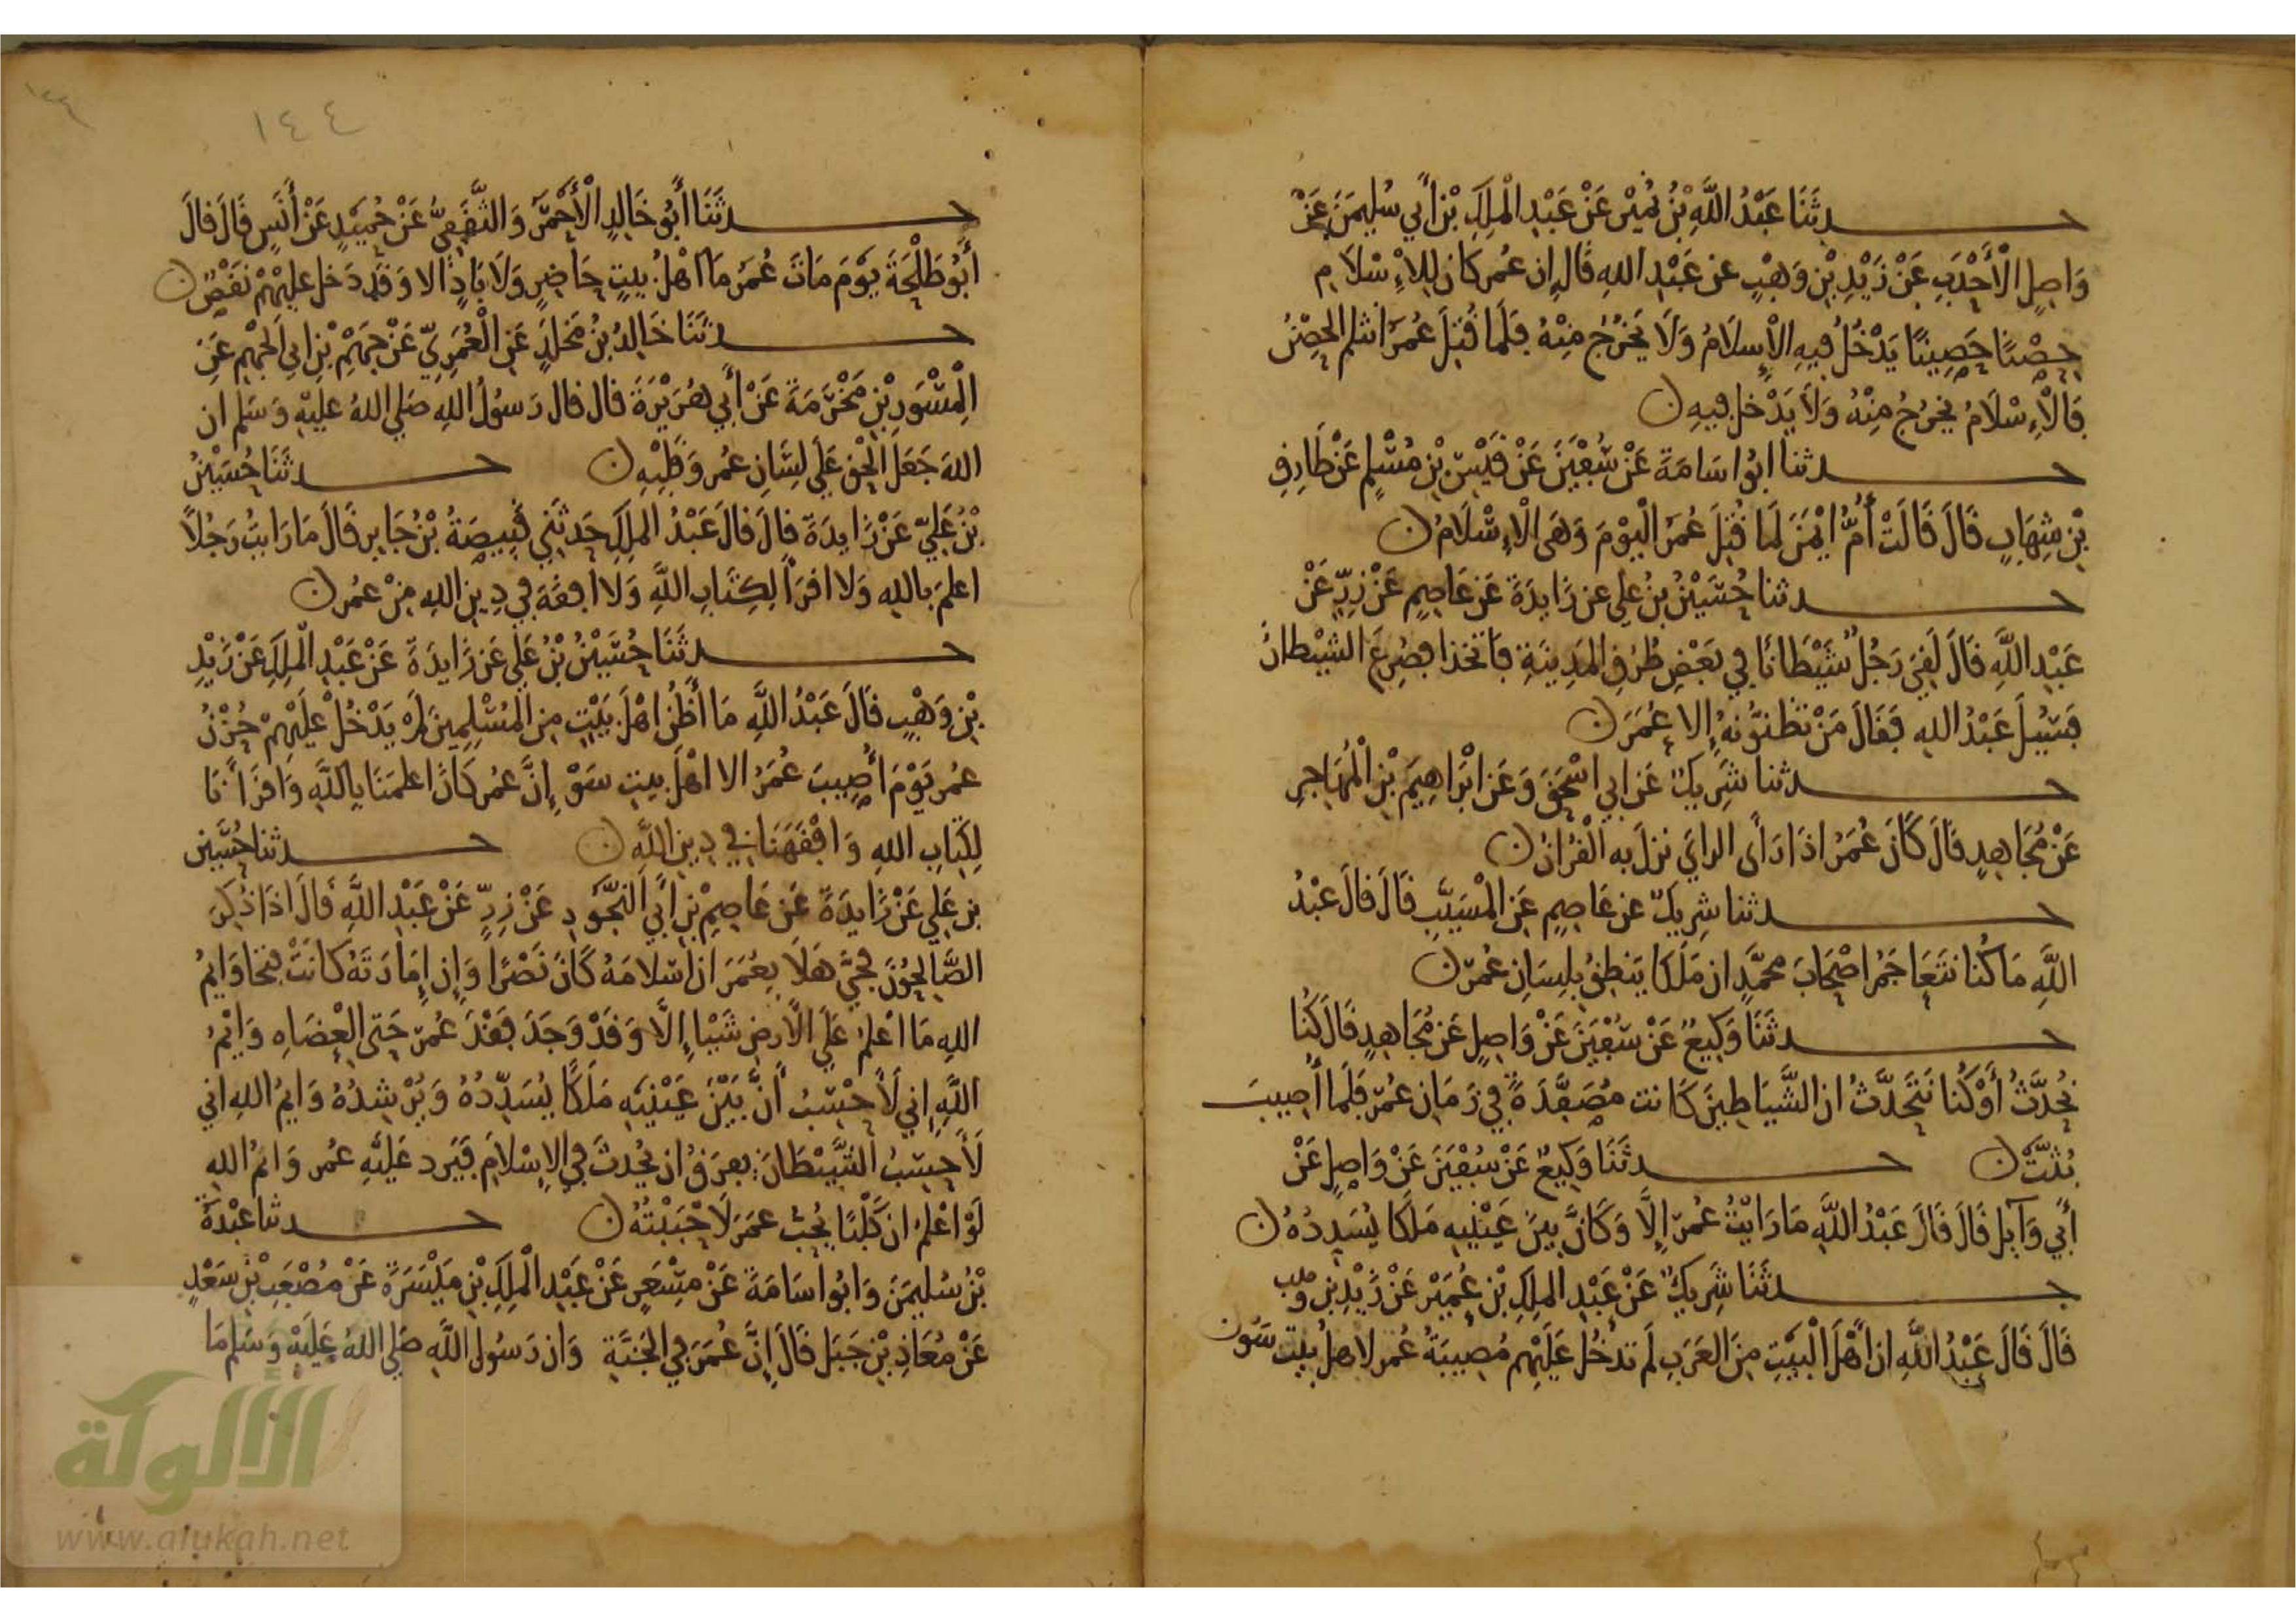 حدثنا عَبْدُ اللَّهِ بْنُ نُمَيْر عَنْ عَبْدِ الْمَلِكِ بْن أَبي سُليمَنَ عَنْ
وَاصِلِ الْأَحْدَبِ عَنْ زَيْدِ بْنِ وَهْبٍ عن عَبْدِ اللهِ قَالَ إن عُمر كان لِلْإِسْلَامِ
حِصْنًا حَصِينًا يَدْخُلُ فيهِ الإِسلَامُ وَلَا يَخْرُجُ مِنْهُ فلَمَا قُتِلَ عُمَرُ انثلم الحِصْنُ
فَالْإِسْلَامُ يخرُجُ مِنْهُ وَلَا يَدْخل فيهِ ن
حدثنا ابُو اسَامَةَ عَنْ سُفْيَنَ عَنْ قَيْسِ بْنِ مُسْلِمٍ عَنْ طَارِقِ
بْنِ شِهَابٍ قَالَ قَالَتْ أُمُّ ايْمَنَ لَمَا قُتِلَ عُمَرُ الْيوْمَ وَهَى الْإِسْلَامُ ن
حدثنا حُسَيْنُ بْنُ عَلي عن زَايدَةَ عَن عَاصِمٍ عَنْ زِرٍّ عَنْ
عَبْدِ اللَّهِ قَالَ لَقِيَ رَجُلٌ شَيْطَانًا فِي بَعْضِ طُرُقِ المَدِينَةِ فَاتخذا فصُرِعَ الشَيْطانُ
فَسُيِلَ عَبْدُ اللهِ فَقَالَ مَنْ تظنّونهُ إِلا عُمَرَ ن
حدثنا شَرِيكٌ عَن ابي اسْحَقَ وَعَن ابْرَاهِيمَ بْنِ الْمُهَاجِرِ
عَنْ مُجَاهِدٍ قَالَ كَانَ عُمَرُ اذَا رَأَى الرايَ نزلَ به الْقُرْانُ ن
حدثنا شرِيكٌ عن عَاصِمٍ عَن الْمُسَيَّبِ قَالَ قالَ عَبْدُ
اللَّهِ مَا كُنا نتَعَاجَمُ اصْحَابَ محمَّدٍ ان مَلَكًا يَنطِقُ بلِسَانِ عُمرَ ن
حدثَنَا وَكِيعٌ عَنْ سُفْيَنَ عَنْ وَاصِلٍ عَن مُجَاهِدٍ قَالَ كُنا
نُحدَّثُ أَوْ كُنا نَتَحَدَّثُ ان الشَّيَاطِينَ كَانت مُصَفَّدَةً فِي زَمَانِ عُمَرَ فَلَمَا أُصِيبَ
بُثتْ ن حدثَنَا وَكِيعٌ عَنْ سُفْيَنَ عَنْ وَاصِلٍ عَنْ
أبي وَآيِل قَالَ قَالَ عَبْدُ اللَّهِ مَا رَايْتُ عُمرَ إِلَّا وَكَانَّ بينَ عَيْنَيهِ مَلَكًا يُسَدِدُهُ ن
حدثَنَا شَرِيكٌ عَنْ عَبْدِ الملِكِ بْنِ عُمَيْر عَنْ زَيْدِ بنِ وهب
قالَ قَالَ عَبْدُ اللَّهِ ان أَهْلَ الْبَيْتِ مِنَ العَرَبِ لَم تدخُل عَلَيْهِم مُصِيبَةُ عُمر لاهلُ بيت سَو ن
١٤٤
حدثَنَا أَبُو خَالِدٍ الْأَحْمَر وَالثَّقَفِيُّ عَنْ حُمَيْدٍ عَنْ أَنَسٍ قَالَ قالَ
أبُو طَلْحَةَ يوْمَ مَاتَ عُمَرُ مَا اهْلُ بيتٍ حَاضِرٍ وَلَا بَادٍ الا وَقَد دَخل عليْهمْ نَقْصٌ ن
حدثَنَا خَالِدُ بْنُ مَخلَدٍ عَن الْعُمَرِيّ عَنْ جَهْمِ بْنِ ابي الجَهْمِ عَنِ
الْمِسْوَرِ بْنِ مَخْرَمَةَ عَنْ أبي هُرَيْرَةَ قال قال رَسوُلُ اللهِ صَلى اللهُ عَليْهِ وَسَلم ان
اللهَ جَعَلَ الحق عَلَى لِسَانِ عُمر وَقلبِهِ ن حدثَنَا حُسَيْنُ
بْنُ عَلِيّ عَنْ زَايدَةَ قالَ قالَ عَبْدُ الملِكِ حَدثَنِي قَبِيصَةُ بْنُ جَابر قَالَ مَا رَايتُ رَجُلًا
اعلمَ بالله وَلا اقرَأ لِكِتَابِ اللَّهِ وَلَا افقَهَ فِي دِينِ اللهِ مِنْ عُمر ن
حدثَنَا حُسَيْنُ بْنُ عَلي عَن زَايدَةَ عَنْ عَبْدِ الْملِكِ عَنْ زَيْدِ
بْنِ وَهْبٍ قَالَ عَبْدُ اللَّهِ مَا أَظُن اهْلَ بَيْتٍ مِن المُسْلِمِينَ لَمْ يَدْخُلْ عَلَيْهِمْ حُزْنُ
عُمر يَوْمَ أُصِيبَ عُمَرُ الا اهْلَ بيتِ سَوْ إِنَّ عُمر كَانَ اعلمَنَا باللَّهِ وَاقرَأنَا
لِكِتَابِ اللهِ وَافْقَهَنَا فِي دِينِ اللَّهِ ن حدثنا حُسَيْن
بن عَلي عَنْ زَايدَةَ عَن عَاصِمِ بْنِ ابي النَّجُودِ عَنْ زِرٍّ عَنْ عَبْدِ اللَّهِ قَالَ اذَا ذُكِرَ
الصَّالِحُونَ فحَيَّ هَلَا بعُمَرَ ان اسْلَامَهُ كَانَ نَصْرًا وَإِن إِمَارَتَهُ كَانَتْ فتحًا وَايمُ
اللهِ مَا اعْلمُ عَلَى الْأرضِ شَيْيا إِلَّا وَقدْ وَجَدَ فقْدَ عُمرَ حَتى العِضَاهِ وَايْمُ
اللَّهِ إِني لَأحْسَبُ أَنَّ بَيْنَ عَيْنَيْهِ مَلَكًا يُسَدِّدُهُ وَيُرْشِدُهُ وَايمُ اللهِ اني
لَأحسِبُ الشَّيْطَانَ يفرَقُ ان يُحْدثَ فِي الإِسْلَامِ فَيَرد عَلَيْهِ عُمر وَايمُ اللهِ
لَوْ اعْلمُ ان كَلْبًا يُحِبُّ عمَرَ لَاحْبَبْتُهُ ن حدثنا عَبْدَةُ
بْنُ سُليمَنَ وَابُو أسَامَةَ عَنْ مِسْعَرٍ عَنْ عَبْدِ الْمَلِكِ بْنِ مَيْسَرَةَ عَنْ مُصْعَبِ بْنِ سَعْدٍ
عَنْ مُعَاذِ بْنِ جَبَل قَالَ إِنَّ عُمَرَ فِي الجَنَّةِ وَان رَسُولَ اللَّهِ صَلى اللهُ عَلَيْهِ وَسَلم مَا
الألوكة
www.alukah.net